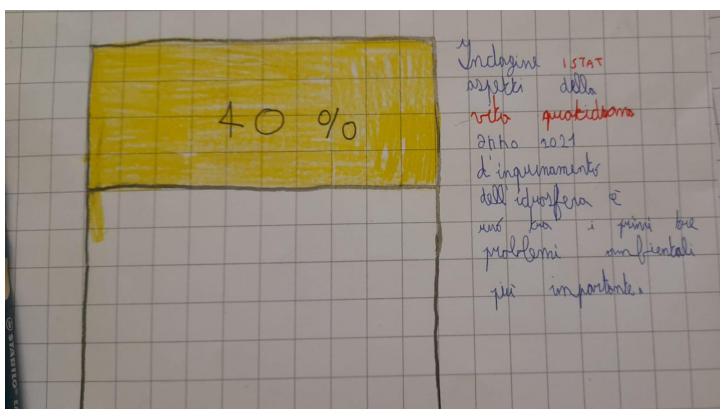 40 %
Indagine ISTAT
aspetti della
vita quotidiana
anno 2021
d'inquinamento
dell'idrosfera è
uno tra i primi tre
problemi ambientali
più importante.
STABILO